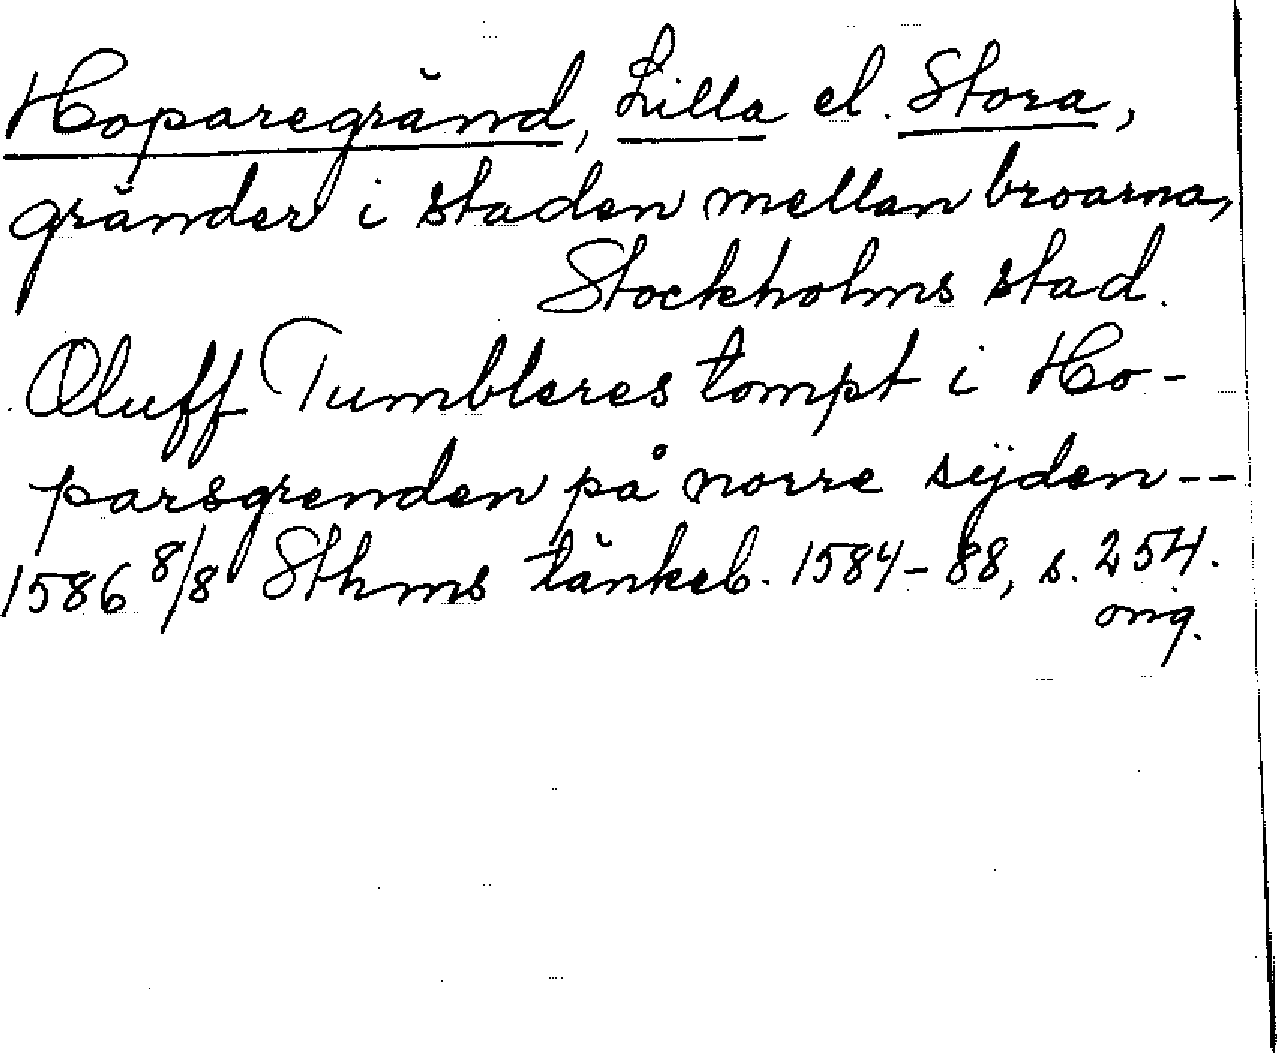 Hoparegränd, Lilla el. Stora,
gränder i staden mellan broarna,
Stockholms stad.
Oluff Tumbleres tompt i Ho-
parsgrenden på norre sijden--
1586 8/8 Sthms tänkeb. 1584-88, s. 254.
orig.